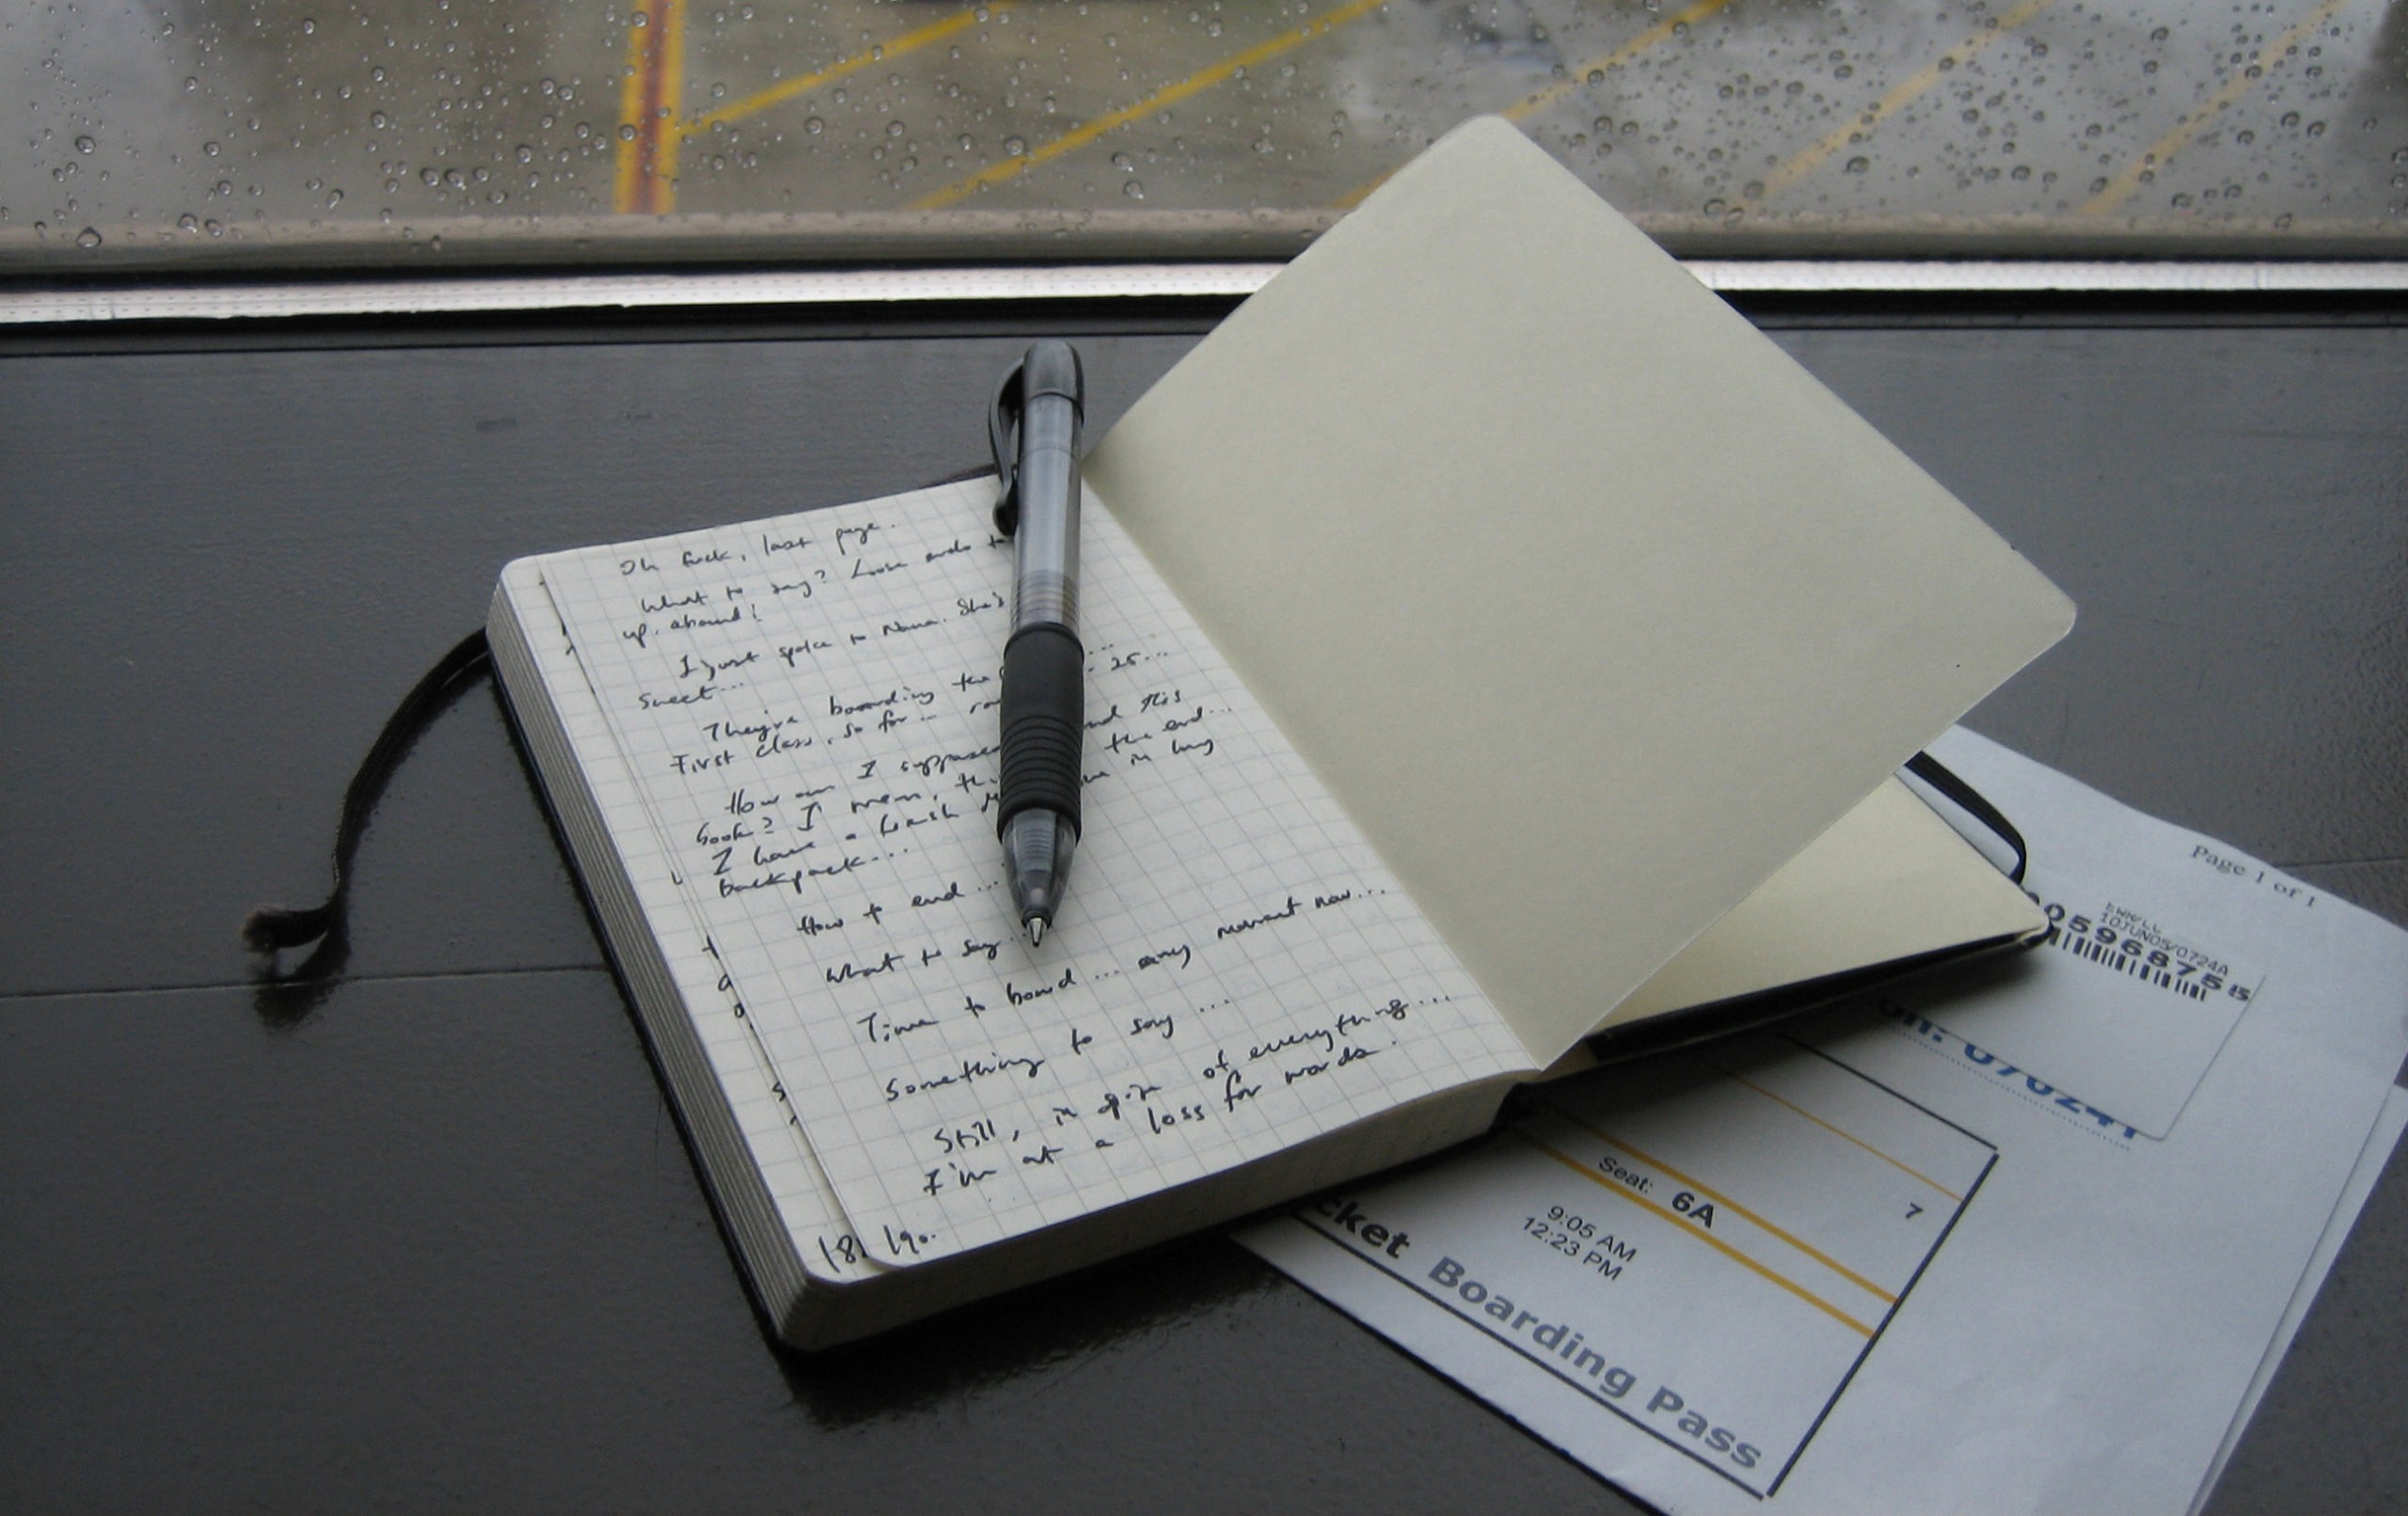 Oh fuck, last page.
What to say? Loose ends to
up. abound!
I just spoke to Nana. She's
sweet...
They're boarding the
25...
First class, so far...
How am I supposed
end this
book? I mean, the
the end...
I have a fresh
in my
backpack...
How to end...
What to say...
Time to board... any moment now...
Something to say...
Still, in spite of everything...
I'm at a loss for words.
18
190.
Page 1 of 1
EWR/CC
10JUN05/0724A
0596875 15
Seat: 6A
7
9:05 AM
12:23 PM
cket Boarding Pass